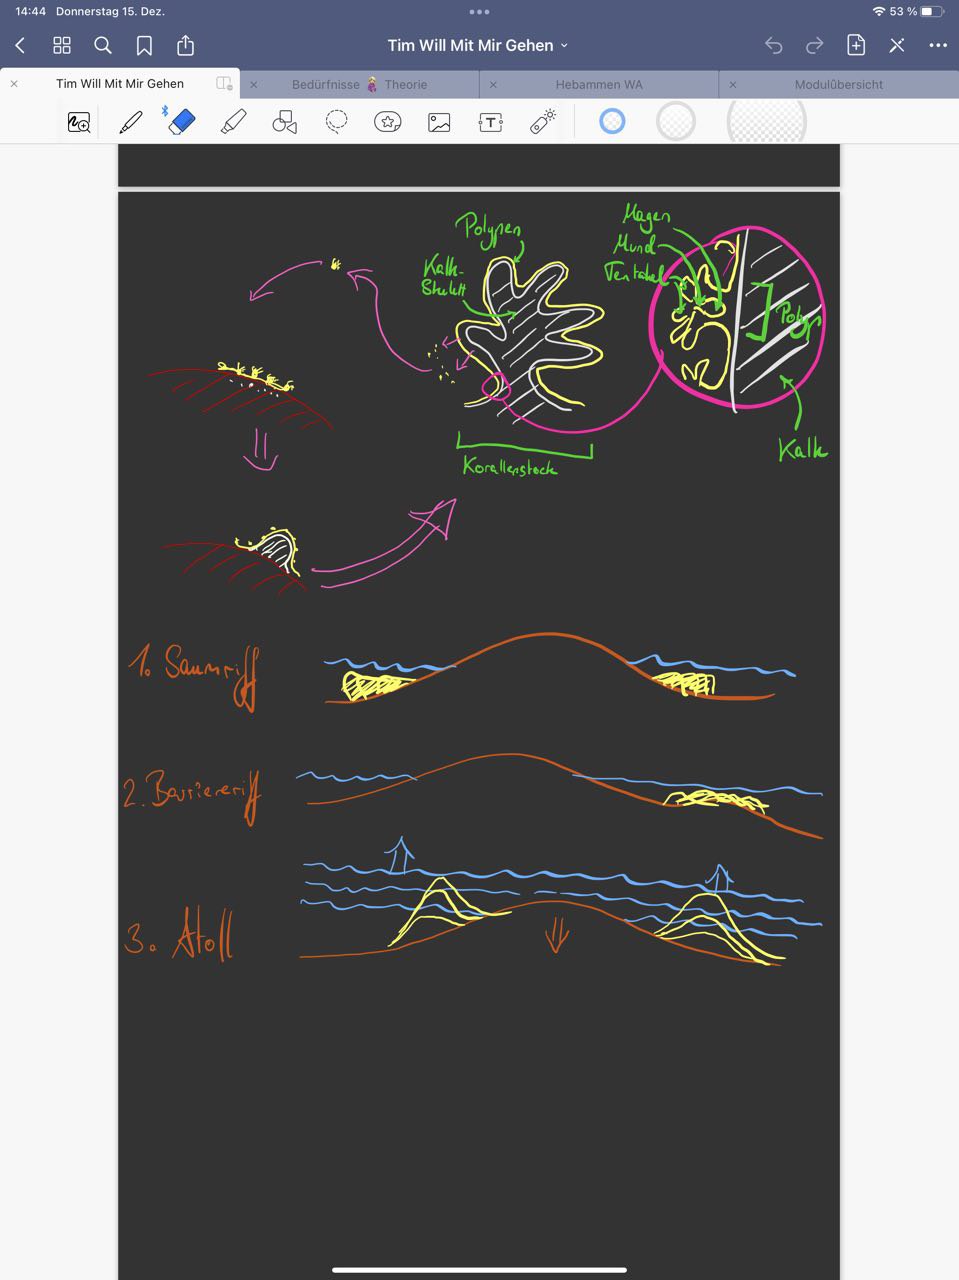 14:44 Donnerstag 15. Dez.
53 %
Tim Will Mit Mir Gehen
Tim Will Mit Mir Gehen
Bedürfnisse Theorie
Hebammen WA
Modulübersicht
T
Polypen
Kalk-
Skelett
Magen
Mund
Tentakel
Polyp
Kalk
Korallenstock
1. Saumriff
2. Barriereriff
3. Atoll